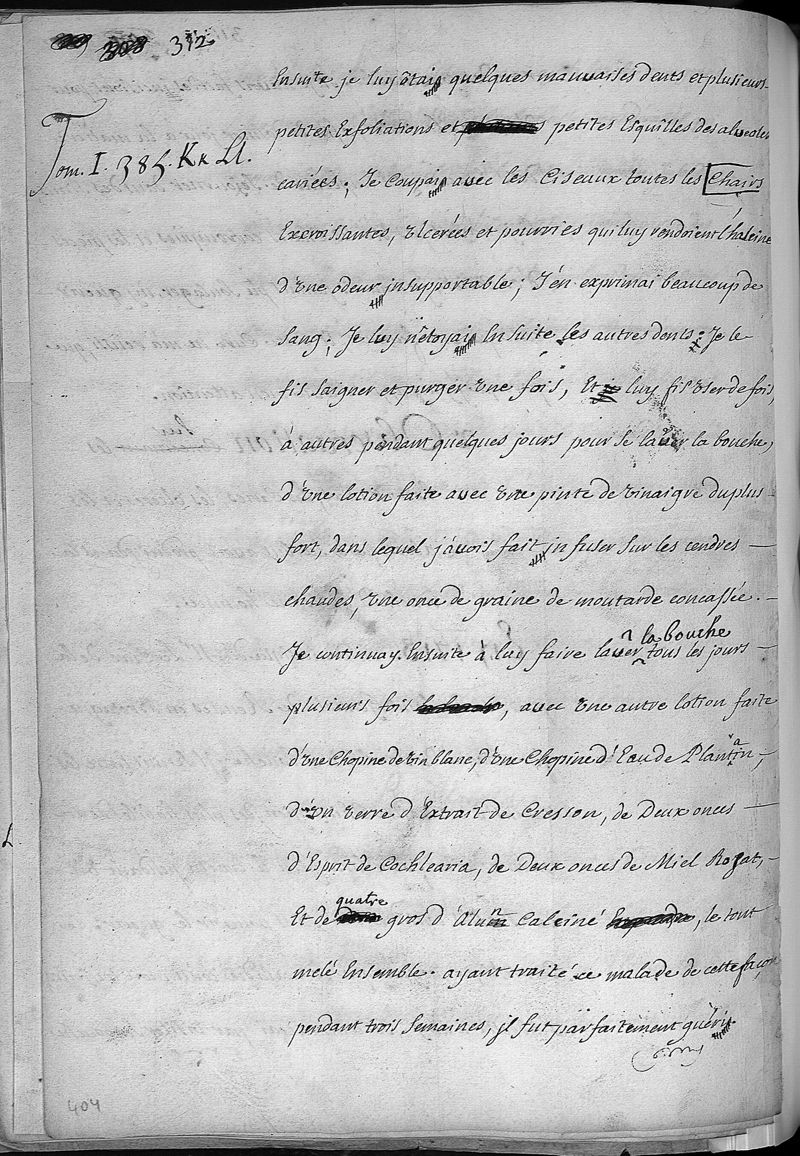 308 312
Tom. I. 385. Kk Ll.
Ensuite je luy ôtais quelques mauvaises dents et plusieurs
petites Exfoliations et petites Esquilles des alveoles
cariées; Je coupais avec les Ciseaux toutes les Chairs
Excroissantes, Ulcerées et pourries qui luy rendoient l'haleine
d'Une odeur jnsupportable; J'én exprimai beaucoup de
Sang; Je luy nétoyais Ensuite les autres dents: Je le
fis Saigner et purger Une fois, Et luy fis User de fois,
à autres pendant quelques jours pour Se laver la bouche,
d'Une lotion faite avec Une pinte de Vinaigre du plus
fort, dans lequel j'avois fait jnfuser Sur les cendres
chaudes, Une once de graine de moutarde concassée.
Je continuay Ensuite à luy faire laver la bouche tous les jours
plusieurs fois, avec Une autre lotion faite
d'Une Chopine de Vin blanc, d'Une Chopine d'Eau de Plantain,
d'Un Verre d'Extrait de Cresson, de Deux onces
d'Esprit de Cochlearia, de Deux onces de Miel Rozat,
Et de quatre gros d'Alun Calciné, le tout
melé Ensemble. ayant traité ce malade de cette façon
pendant trois Semaines, jl fut parfaitement guéri
404